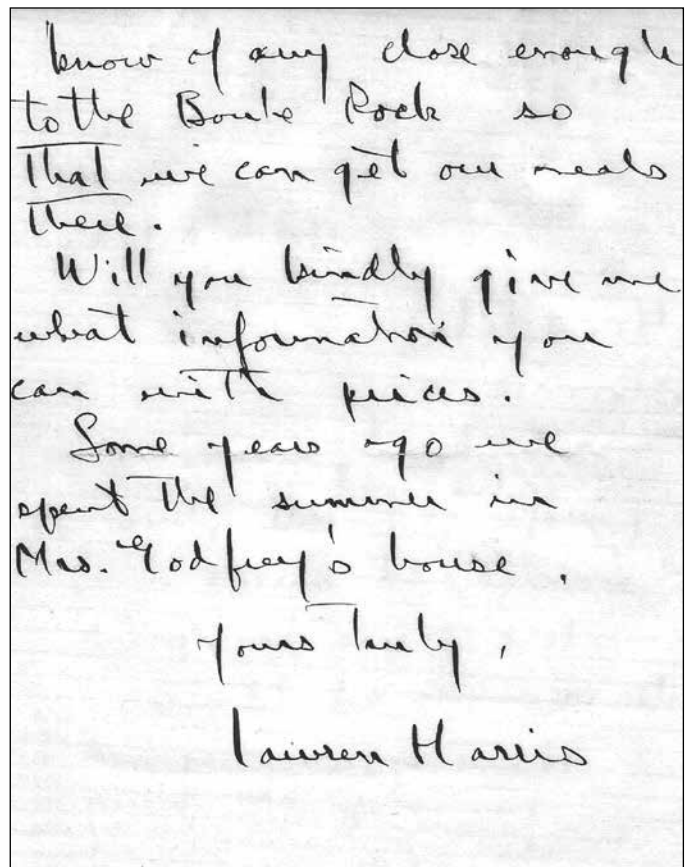 know of any close enough
to the Boule Rock so
that we can get our meals
there.
Will you kindly give me
what information you
can with prices.
Some years ago we
spent the summer in
Mrs. Godfrey's house.
Yours truly,
Lawren Harris